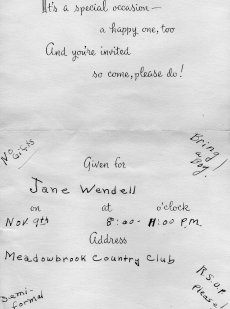 It's a special occasion—
a happy one, too
And you're invited
so come, please do!
No Gifts
Bring a Boy!
Given for
Jane Wendell
on at o'clock
Nov 9th 8:00 - 11:00 P.M.
Address
Meadowbrook Country Club
Semi-formal
R.S.V.P. Please!